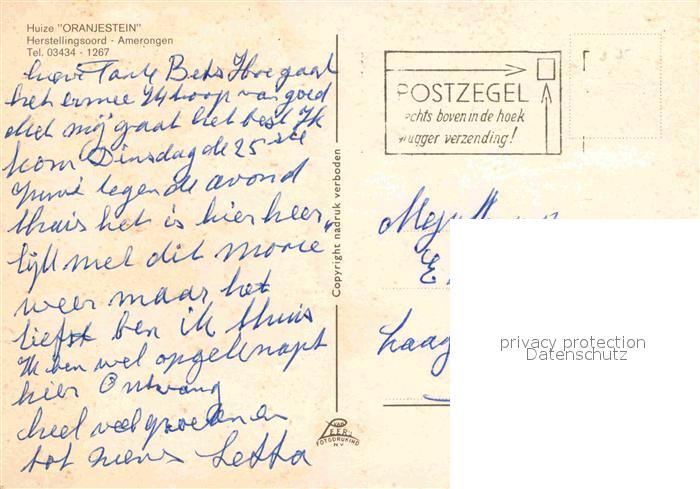 Huize "ORANJESTEIN"
Herstellingsoord - Amerongen
Tel. 03434 - 1267
Lieve Tante Bets Hoe gaat
het ermee Ik hoop van goed
met mij gaat het best Ik
kom Dinsdag de 25 ste
Juni tegen de avond
thuis het is hier heer
lijk met dit mooie
weer maar het
liefst ben ik thuis
Ik ben wel opgeknapt
hier Ontvang
heel veel groeten en
tot ziens Letta
Copyright nadruk verboden
VAN LEER'S
FOTODRUKIND
N.V.
POSTZEGEL
echts boven in de hoek
vlugger verzending!
Mej
E
Laag
privacy protection
Datenschutz